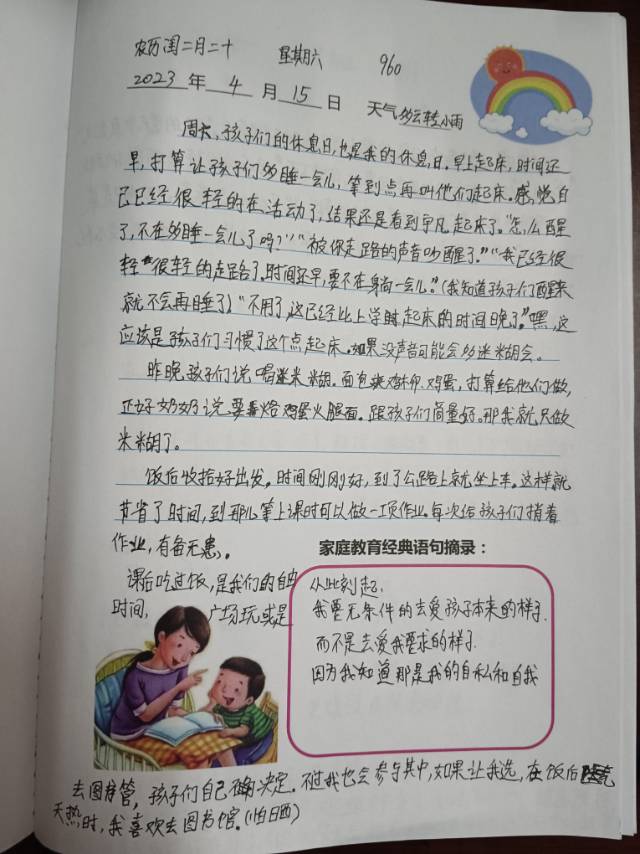 农历闰二月二十 星期六 960
2023 年 4 月 15 日 天气 多云转小雨
周六，孩子们的休息日，也是我的休息日。早上起床，时间还
早，打算让孩子们多睡一会儿，等到点再叫他们起床。感觉自
己已经很轻的在活动了，结果还是看到宇凡起来了。“怎么醒
了，不在多睡一会儿了吗？”“被你走路的声音吵醒了。”“我已经很
轻很轻的走路了。时间还早，要不在躺一会儿。”（我知道孩子们醒来
就不会再睡了）“不用了，这已经比上学时起床的时间晚了。”嘿，这
应该是孩子们习惯了这个点起床。如果没声音可能会多迷糊会。
昨晚孩子们说喝米糊．面包夹鸡蛋，打算给他们做，
正好奶奶说要烙鸡蛋火腿面。跟孩子们商量好。那我就只做
米糊了。
饭后收拾好出发。时间刚刚好，到了公路上就坐上车。这样就
节省了时间，到那儿等上课时可以做一项作业。每次给孩子们捎着
作业，有备无患。
家庭教育经典语句摘录：
课后吃过饭，是我们的自由
时间， 广场玩或是
从此刻起．
我要无条件的去爱孩子本来的样子．
而不是去爱我要求的样子．
因为我知道那是我的自私和自我
去图书管，孩子们自己确决定。不过我也会参与其中，如果让我选，在饭后
天热时，我喜欢去图书馆。（怕晒）